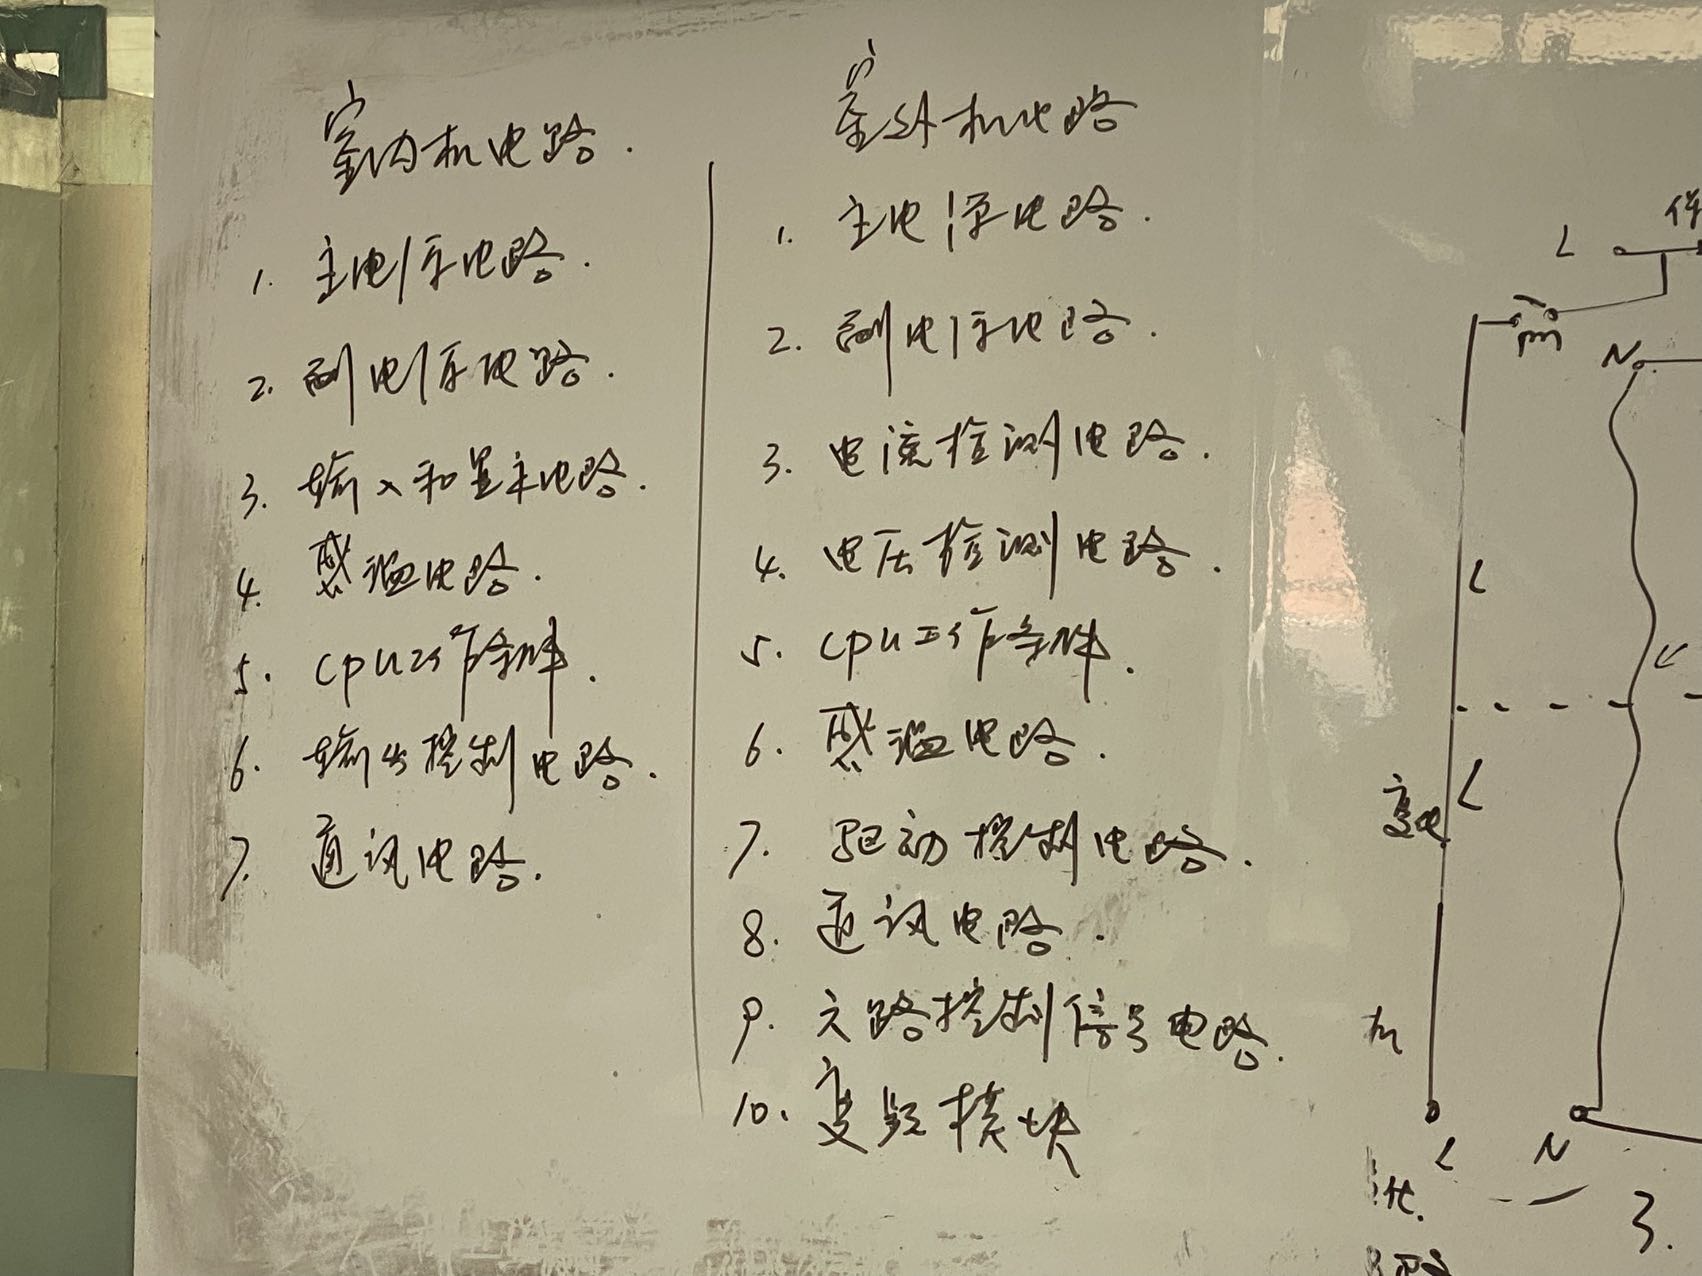 室内机电路.
1. 主电源电路.
2. 副电源电路.
3. 输入和显示电路.
4. 感温电路.
5. cpu工作条件.
6. 输出控制电路.
7. 通讯电路.
室外机电路
1. 主电源电路.
2. 副电源电路.
3. 电流检测电路.
4. 电压检测电路.
5. cpu工作条件.
6. 感温电路.
7. 驱动控制电路.
8. 通讯电路.
9. 六路控制信号电路.
10. 变频模块
L
N
L
L
L
N
3.